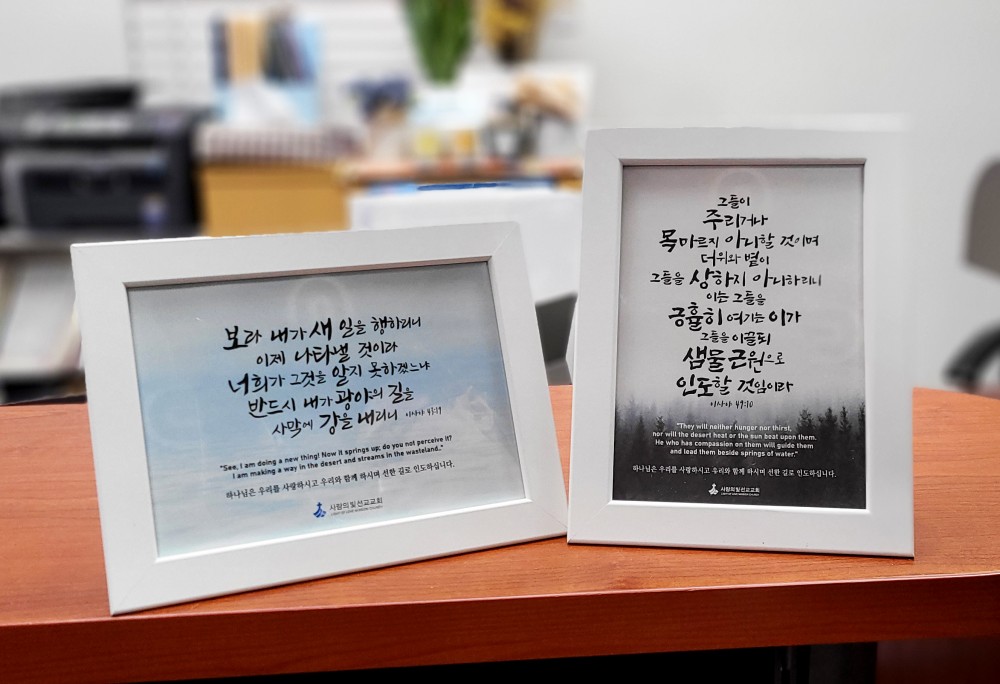 보라 내가 새 일을 행하리니
이제 나타낼 것이라
너희가 그것을 알지 못하겠느냐
반드시 내가 광야에 길을
사막에 강을 내리니 이사야 43:19
"See, I am doing a new thing! Now it springs up; do you not perceive it?
I am making a way in the desert and streams in the wasteland.."
하나님은 우리를 사랑하시고 우리와 함께 하시며 선한 길로 인도하십니다.
사랑의빛선교교회
LIGHT OF LOVE MISSION CHURCH
그들이
주리거나
목마르지 아니할 것이며
더위와 볕이
그들을 상하지 아니하리니
이는 그들을
긍휼히 여기는 이가
그들을 이끌되
샘물 근원으로
인도할 것임이라
이사야 49:10
"They will neither hunger nor thirst,
nor will the desert heat or the sun beat upon them.
He who has compassion on them will guide them
and lead them beside springs of water."
하나님은 우리를 사랑하시고 우리와 함께 하시며 선한 길로 인도하십니다.
사랑의빛선교교회
LIGHT OF LOVE MISSION CHURCH